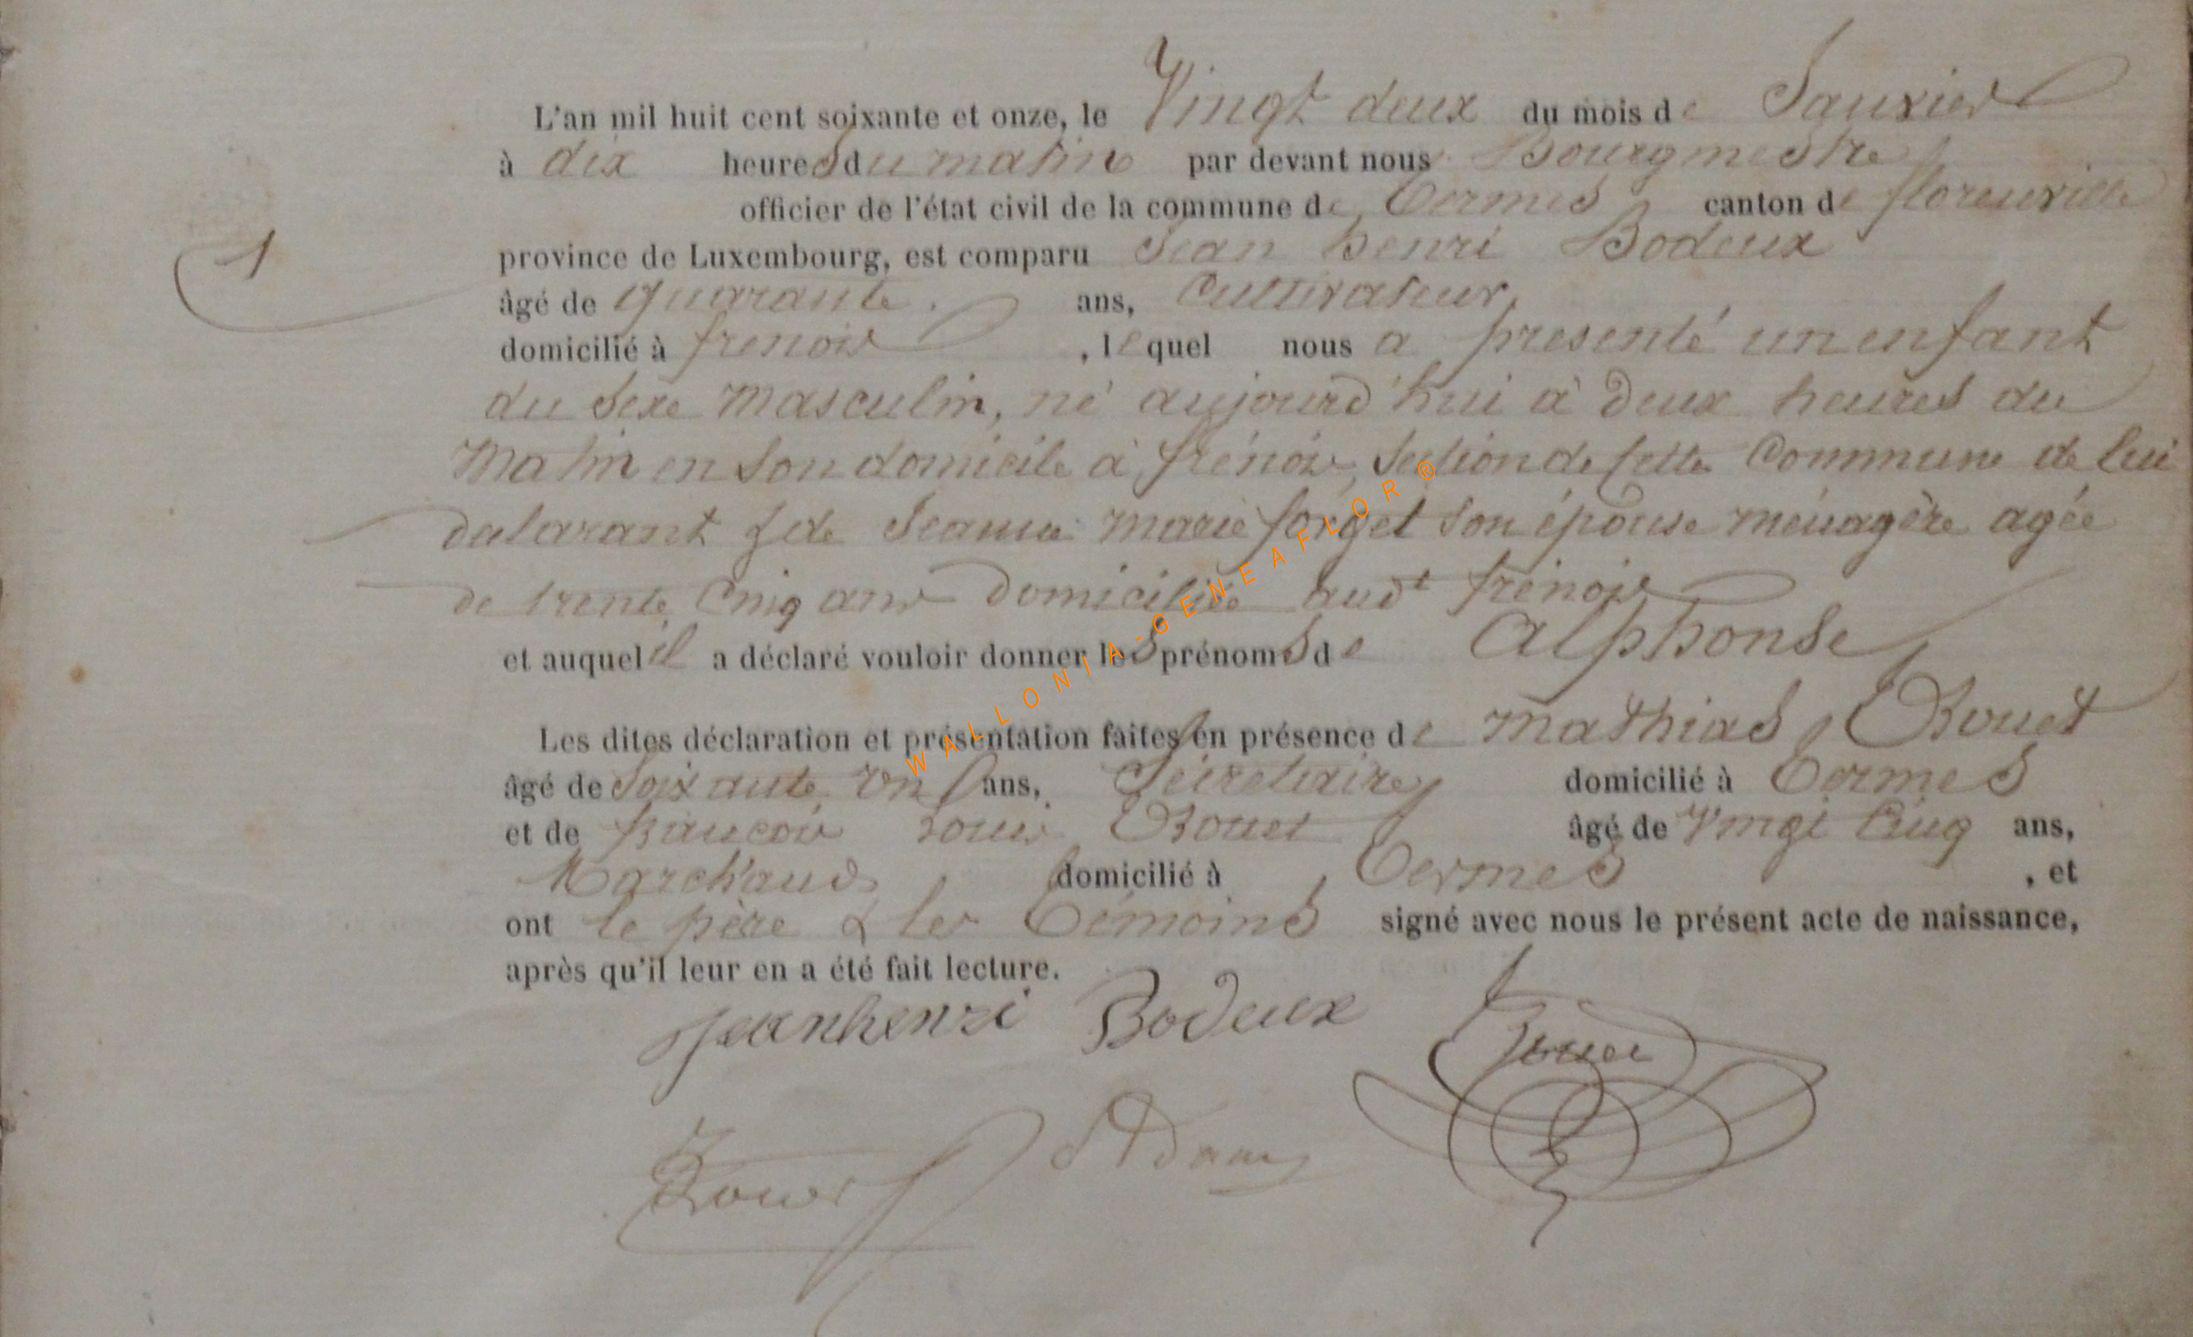 L'an mil huit cent soixante et onze, le Vingt deux du mois de Janvier
à dix heures du matin par devant nous Bourgmestre
officier de l'état civil de la commune de Termes canton de florenville
province de Luxembourg, est comparu Jean henri Bodeux
1
âgé de quarante ans, Cultivateur,
domicilié à frenois, lequel nous a presenté un enfant
du sexe masculin, né aujourd'hui à deux heures du
Matin en son domicile à frénois, section de cette Commune de lui
déclarant & de Jeanne marie forget son épouse ménagère agée
de trente Cinq ans domiciliée aud.t frénois
et auquel il a déclaré vouloir donner les prénoms de Alphonse
Les dites déclaration et présentation faites en présence de Mathias Rouet
âgé de Soixante un ans, Sécretaire domicilié à Termes
et de françois Louis Rouet âgé de Vingt Cinq ans,
Marchand domicilié à Termes, et
ont le père & les témoins signé avec nous le présent acte de naissance,
après qu'il leur en a été fait lecture.
jean henri Bodeux Rouet
Rouet Adam
WALLONIA-GENEAFLOR ®